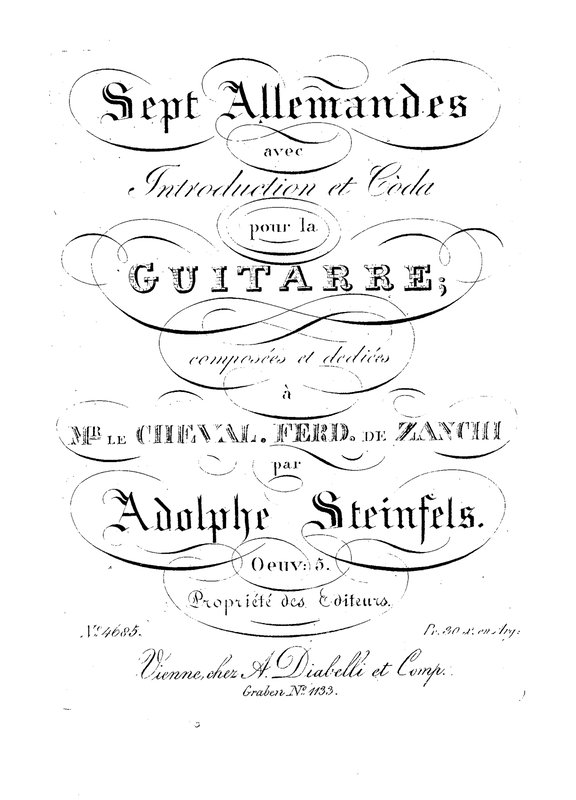 Sept Allemandes
avec
Introduction et Còda
pour la
GUITARRE;
composées et dediées
à
MR LE CHEVAL. FERD. DE ZANCHI
par
Adolphe Steinfels.
Oeuv: 5.
Propriété des Editeurs.
No 4685.
Pr. 30 x. en Arg:
Vienne, chez A. Diabelli et Comp.
Graben No 1133.